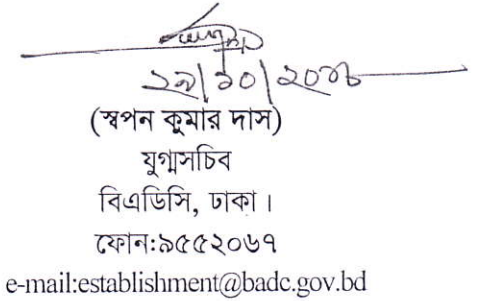 ২৯/১০/২০১৮
(স্বপন কুমার দাস)
যুগ্মসচিব
বিএডিসি, ঢাকা।
ফোন:৯৫৫২০৬৭
e-mail:establishment@badc.gov.bd